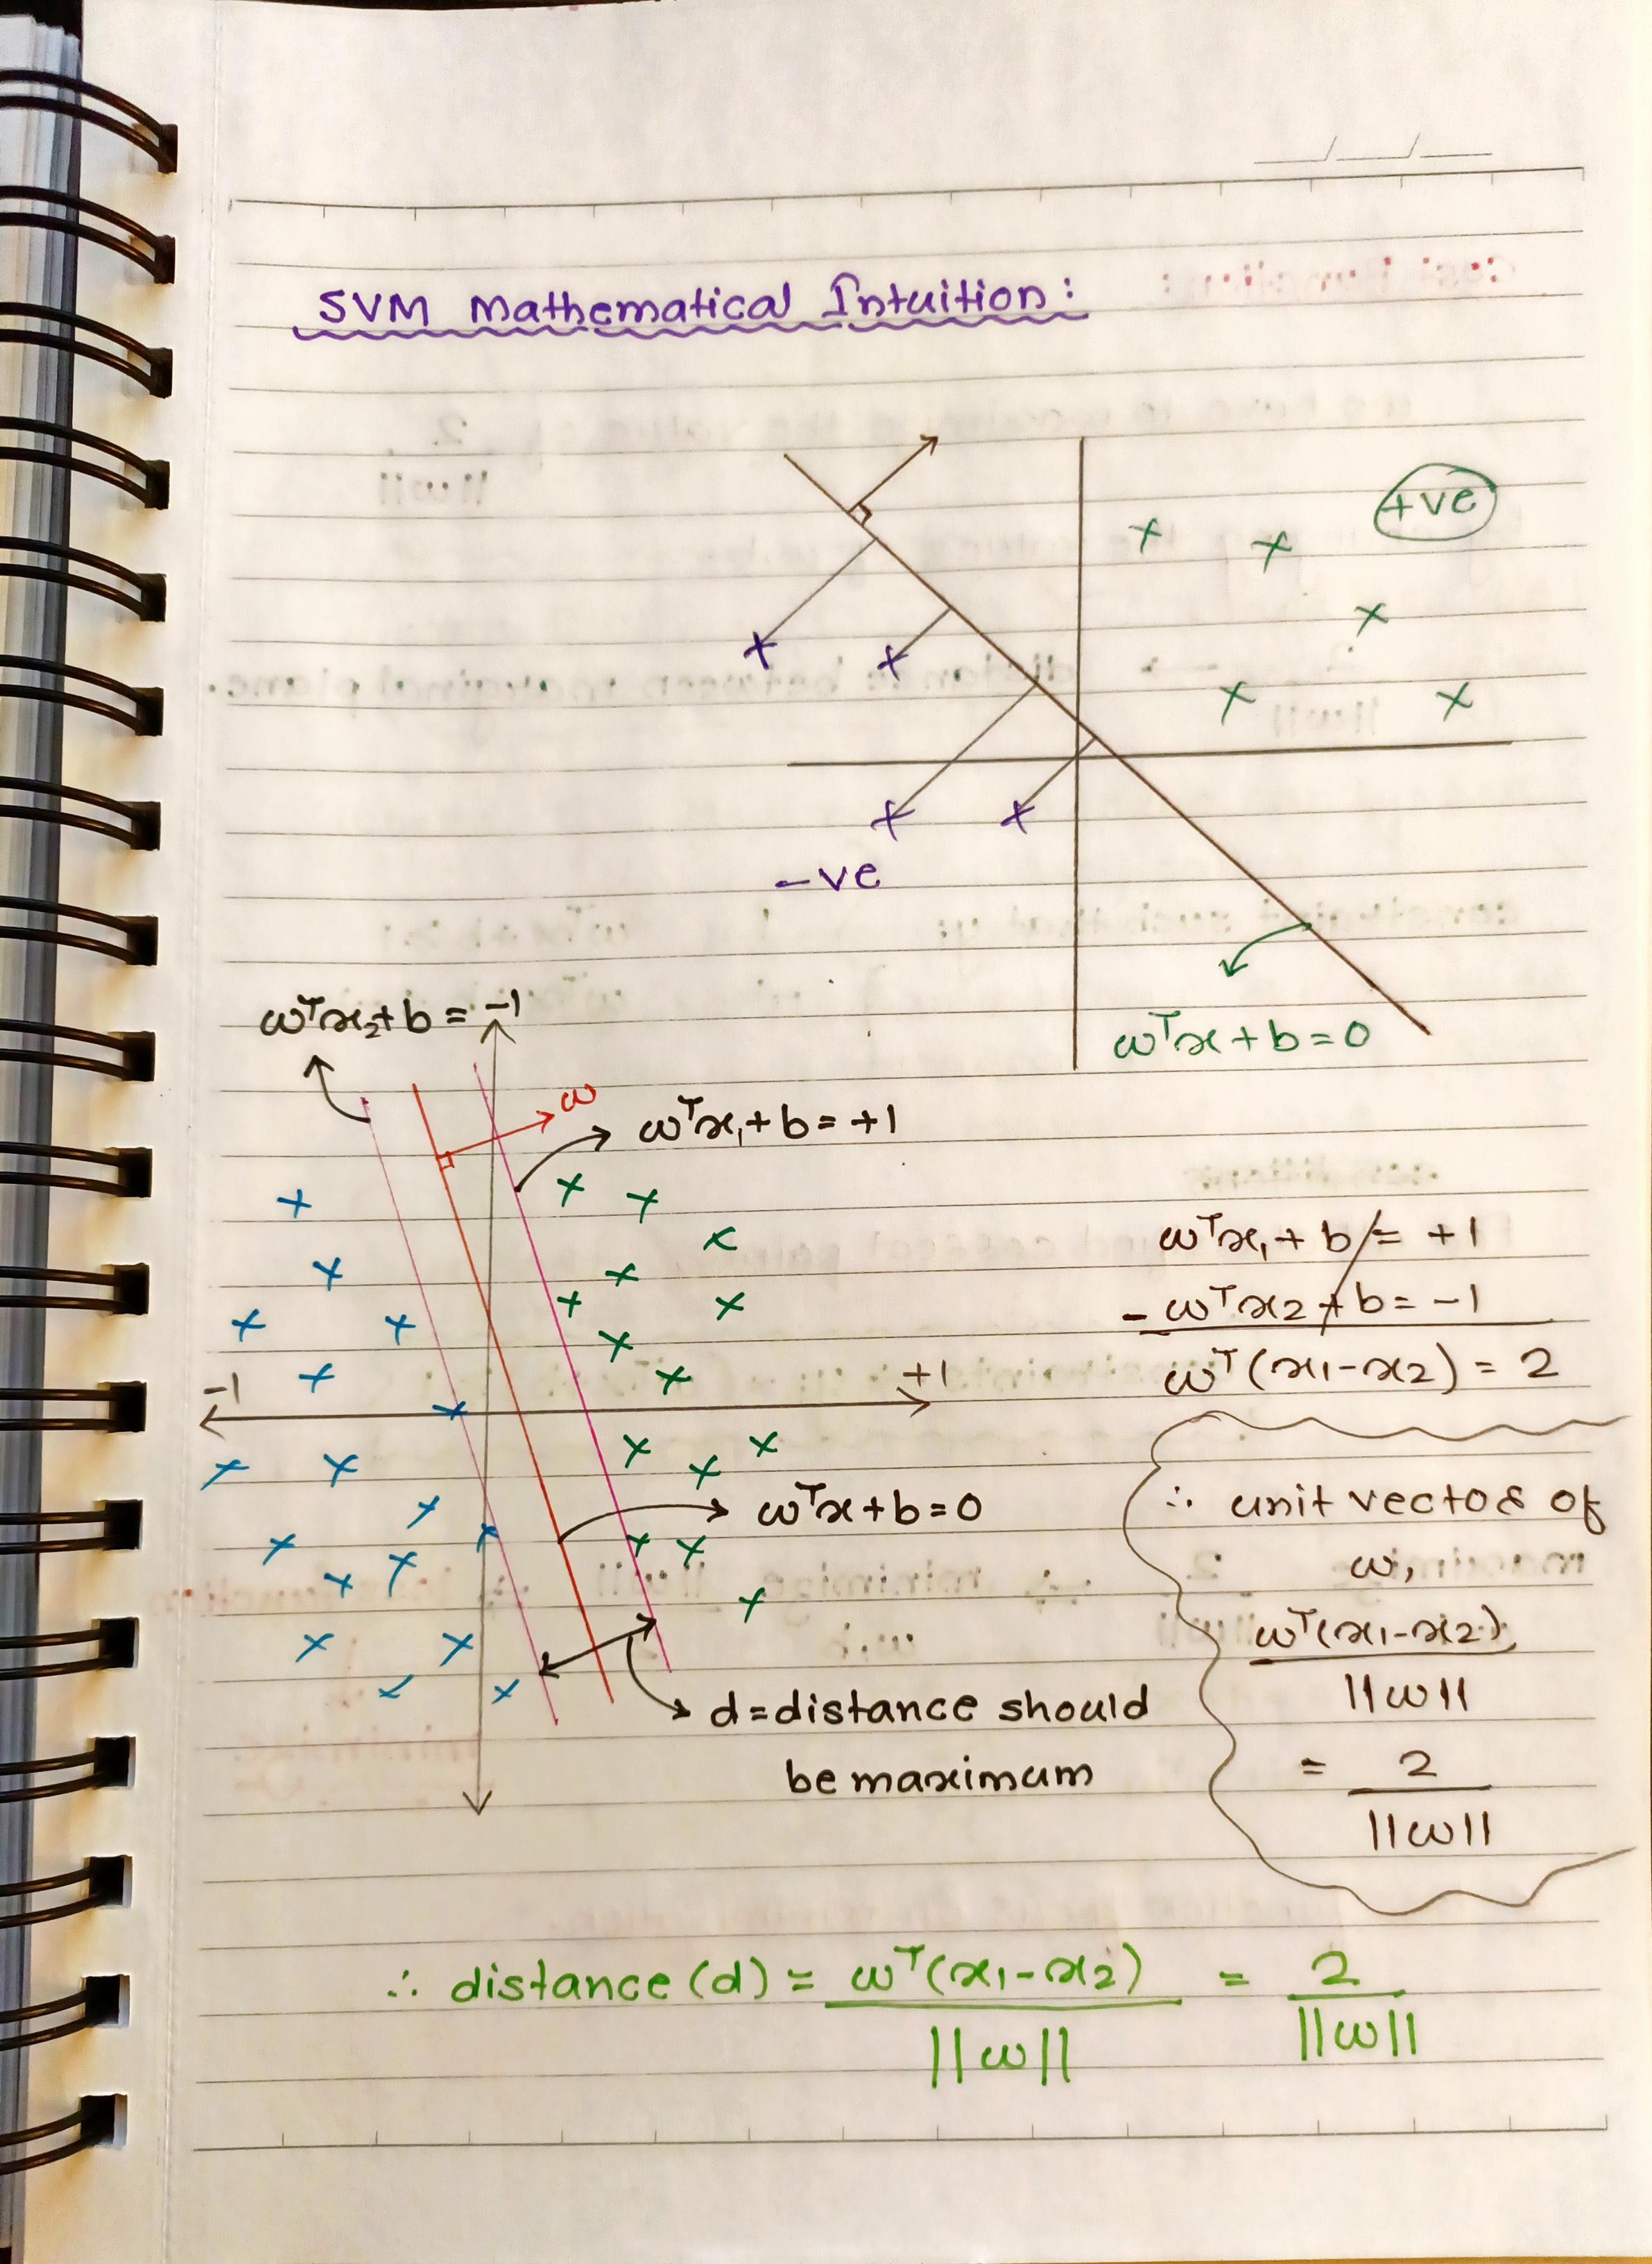 SVM Mathematical Intuition:
+ve
-ve
ωᵀx + b = 0
ωᵀx₂+b = -1
ω
ωᵀx₁+ b = +1
-1
+1
ωᵀx+b=0
d=distance should
be maximum
ωᵀx₁+ b = +1
- ωᵀx₂+b= -1
ωᵀ(x₁-x₂) = 2
∴ unit vector of
ω,
ωᵀ(x₁-x₂)
||ω||
= 2
||ω||
∴ distance(d) = ωᵀ(x₁-x₂) = 2
||ω|| ||ω||